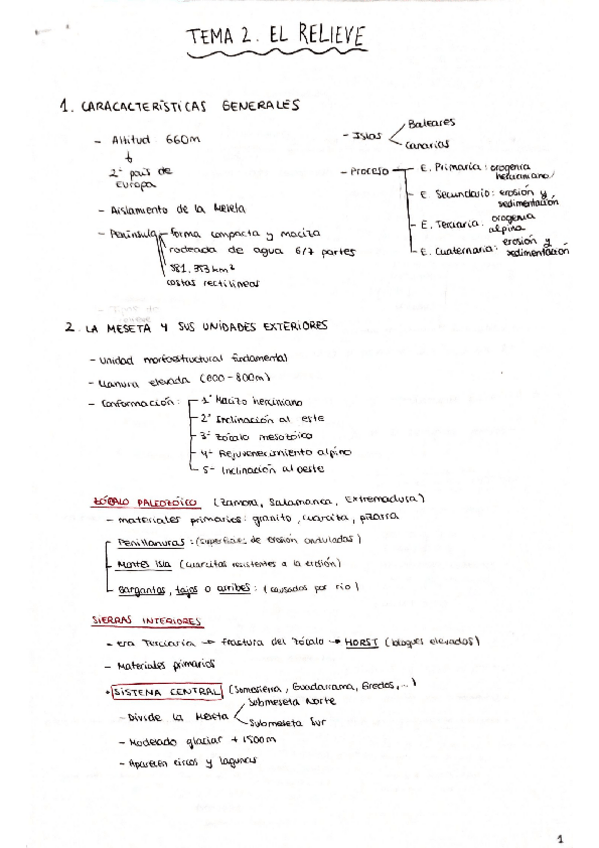 TEMA 2. EL RELIEVE
1. CARACACTERÍSTICAS GENERALES
- Altitud: 660m
↓
2º país de
Europa
- Aislamiento de la Meseta
- Península
forma compacta y maciza
rodeada de agua 6/7 partes
581.353 km²
costas rectilíneas
- Islas
Baleares
Canarias
- Proceso
E. Primaria: orogenia
herciniano
- E. Secundario: erosión y
sedimentación
- E. Terciaria: orogenia
alpina
E. Cuaternaria: erosión y
sedimentación
2. LA MESETA Y SUS UNIDADES EXTERIORES
- Unidad morfoestructural fundamental
- Llanura elevada (600-800m)
- Conformación:
1º Macizo herciniano
2º Inclinación al este
3º Zócalo mesozóico
4º Rejuvenecimiento alpino
5º Inclinación al oeste
ZÓCALO PALEOZÓICO (Zamora, Salamanca, Extremadura)
- materiales primarios: granito, cuarcita, pizarra
Penillanuras: (superficies de erosión onduladas)
Montes Isla (cuarcitas resistentes a la erosión)
Gargantas, tajos o arribes: (causados por río)
SIERRAS INTERIORES
- era Terciaria → fractura del zócalo → HORST (bloques elevados)
- Materiales primarios
• SISTEMA CENTRAL (Somosierra, Guadarrama, Gredos,...)
- Divide la Meseta
Submeseta Norte
Submeseta Sur
- Modelado glaciar + 1500m
- Aparecen circos y lagunas
1